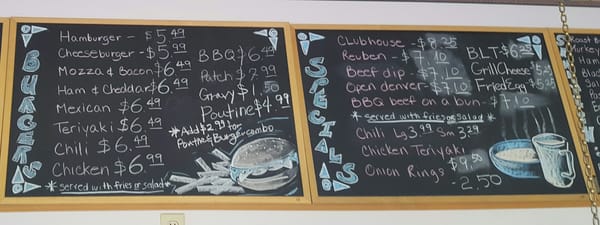 BURGERS
Hamburger - $5.49
Cheeseburger - $5.99
Mozza & Bacon $6.49
Ham & Cheddar $6.49
Mexican $6.49
Teriyaki $6.49
Chili $6.49
Chicken $6.99
*served with fries or salad*
BBQ $6.49
Patch $7.99
Gravy $1.50
Poutine $4.99
*Add $2.99 for
Poutine & Burger combo
SPECIALS
Clubhouse - $8.25
Reuben - $7.10
Beef dip - $7.10
Open denver $7.10
BBQ beef on a bun - $7.10
*served with fries or salad*
Chili Lg 3.99 Sm 3.29
Chicken Teriyaki
$9.50
Onion Rings
- 2.50
BLT $6.25
Grill Cheese $5.25
Fried Egg $5.25
Roast B
Turkey
Ham